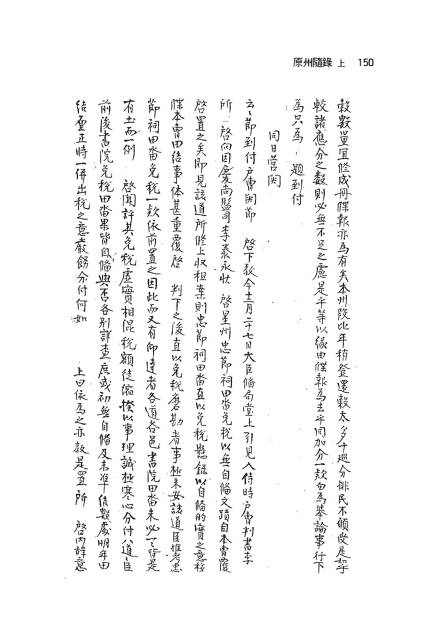 原州隨錄 上 150
穀數量宜修成冊牒報亦爲有矣本州段比年稍登還穀太多乎巡分排民不願受是如乎
較諸應分之數則必無不足之慮是乎等以緣由牒報爲去乎同加分一款勿爲擧論事行下
爲只爲 題到付
同日營關
云云節到付戶曹關節 啓下敎今十二月二十七日大臣備局堂上引見入侍時戶曹判書李
所 啓向因慶尙監司李泰永狀 啓星州忠節祠田畓免稅以無自備文蹟自本曹覆
啓置之矣卽見該道所修上收租案則忠節祠田畓直以免稅懸錄以自備的實之意移
牒本曹田結事体甚重覆啓 判下之後直以免稅磨勘者事極未妥該道臣推考忠
節祠田畓免稅一款依前置之因此而又有仰達者各道各邑書院田畓未必皆是
有土而一例 啓聞許其免稅虛實相混稅額徒縮揆以事理誠極寒心分付八道道臣
前後書院免稅田畓果皆自備與否各別詳查後或初無自備及未準結數處明年田
結查正時一併出稅之意嚴飭分付何如 上曰依爲之亦敎是置 所 啓內辭意